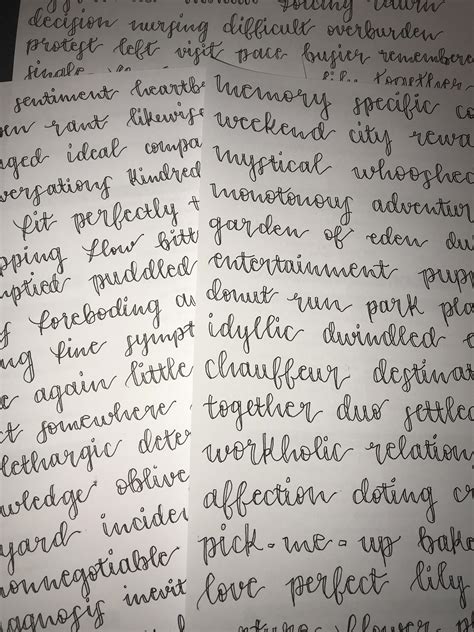 decision nursing difficult overburden
protest left visit pace busier remembere
single
together
sentiment heartb
rant likewise
ged ideal compa
versations kindred
fit perfectly t
pping flow bitt
mptied puddled
f foreboding au
ng fine sympt
e again little
ct somewhere
lethargic deter
owledge oblive
yard incide
onnegotiable
agnosis inevit
memory specific co
weekend city rewa
mystical whooshed
monotonous adventur
garden of eden du
entertainment pupp
donut run park pla
idyllic dwindled
chauffeur destinat
together duo settled
workholic relation
affection doting cr
pick-me-up bake
love perfect lily